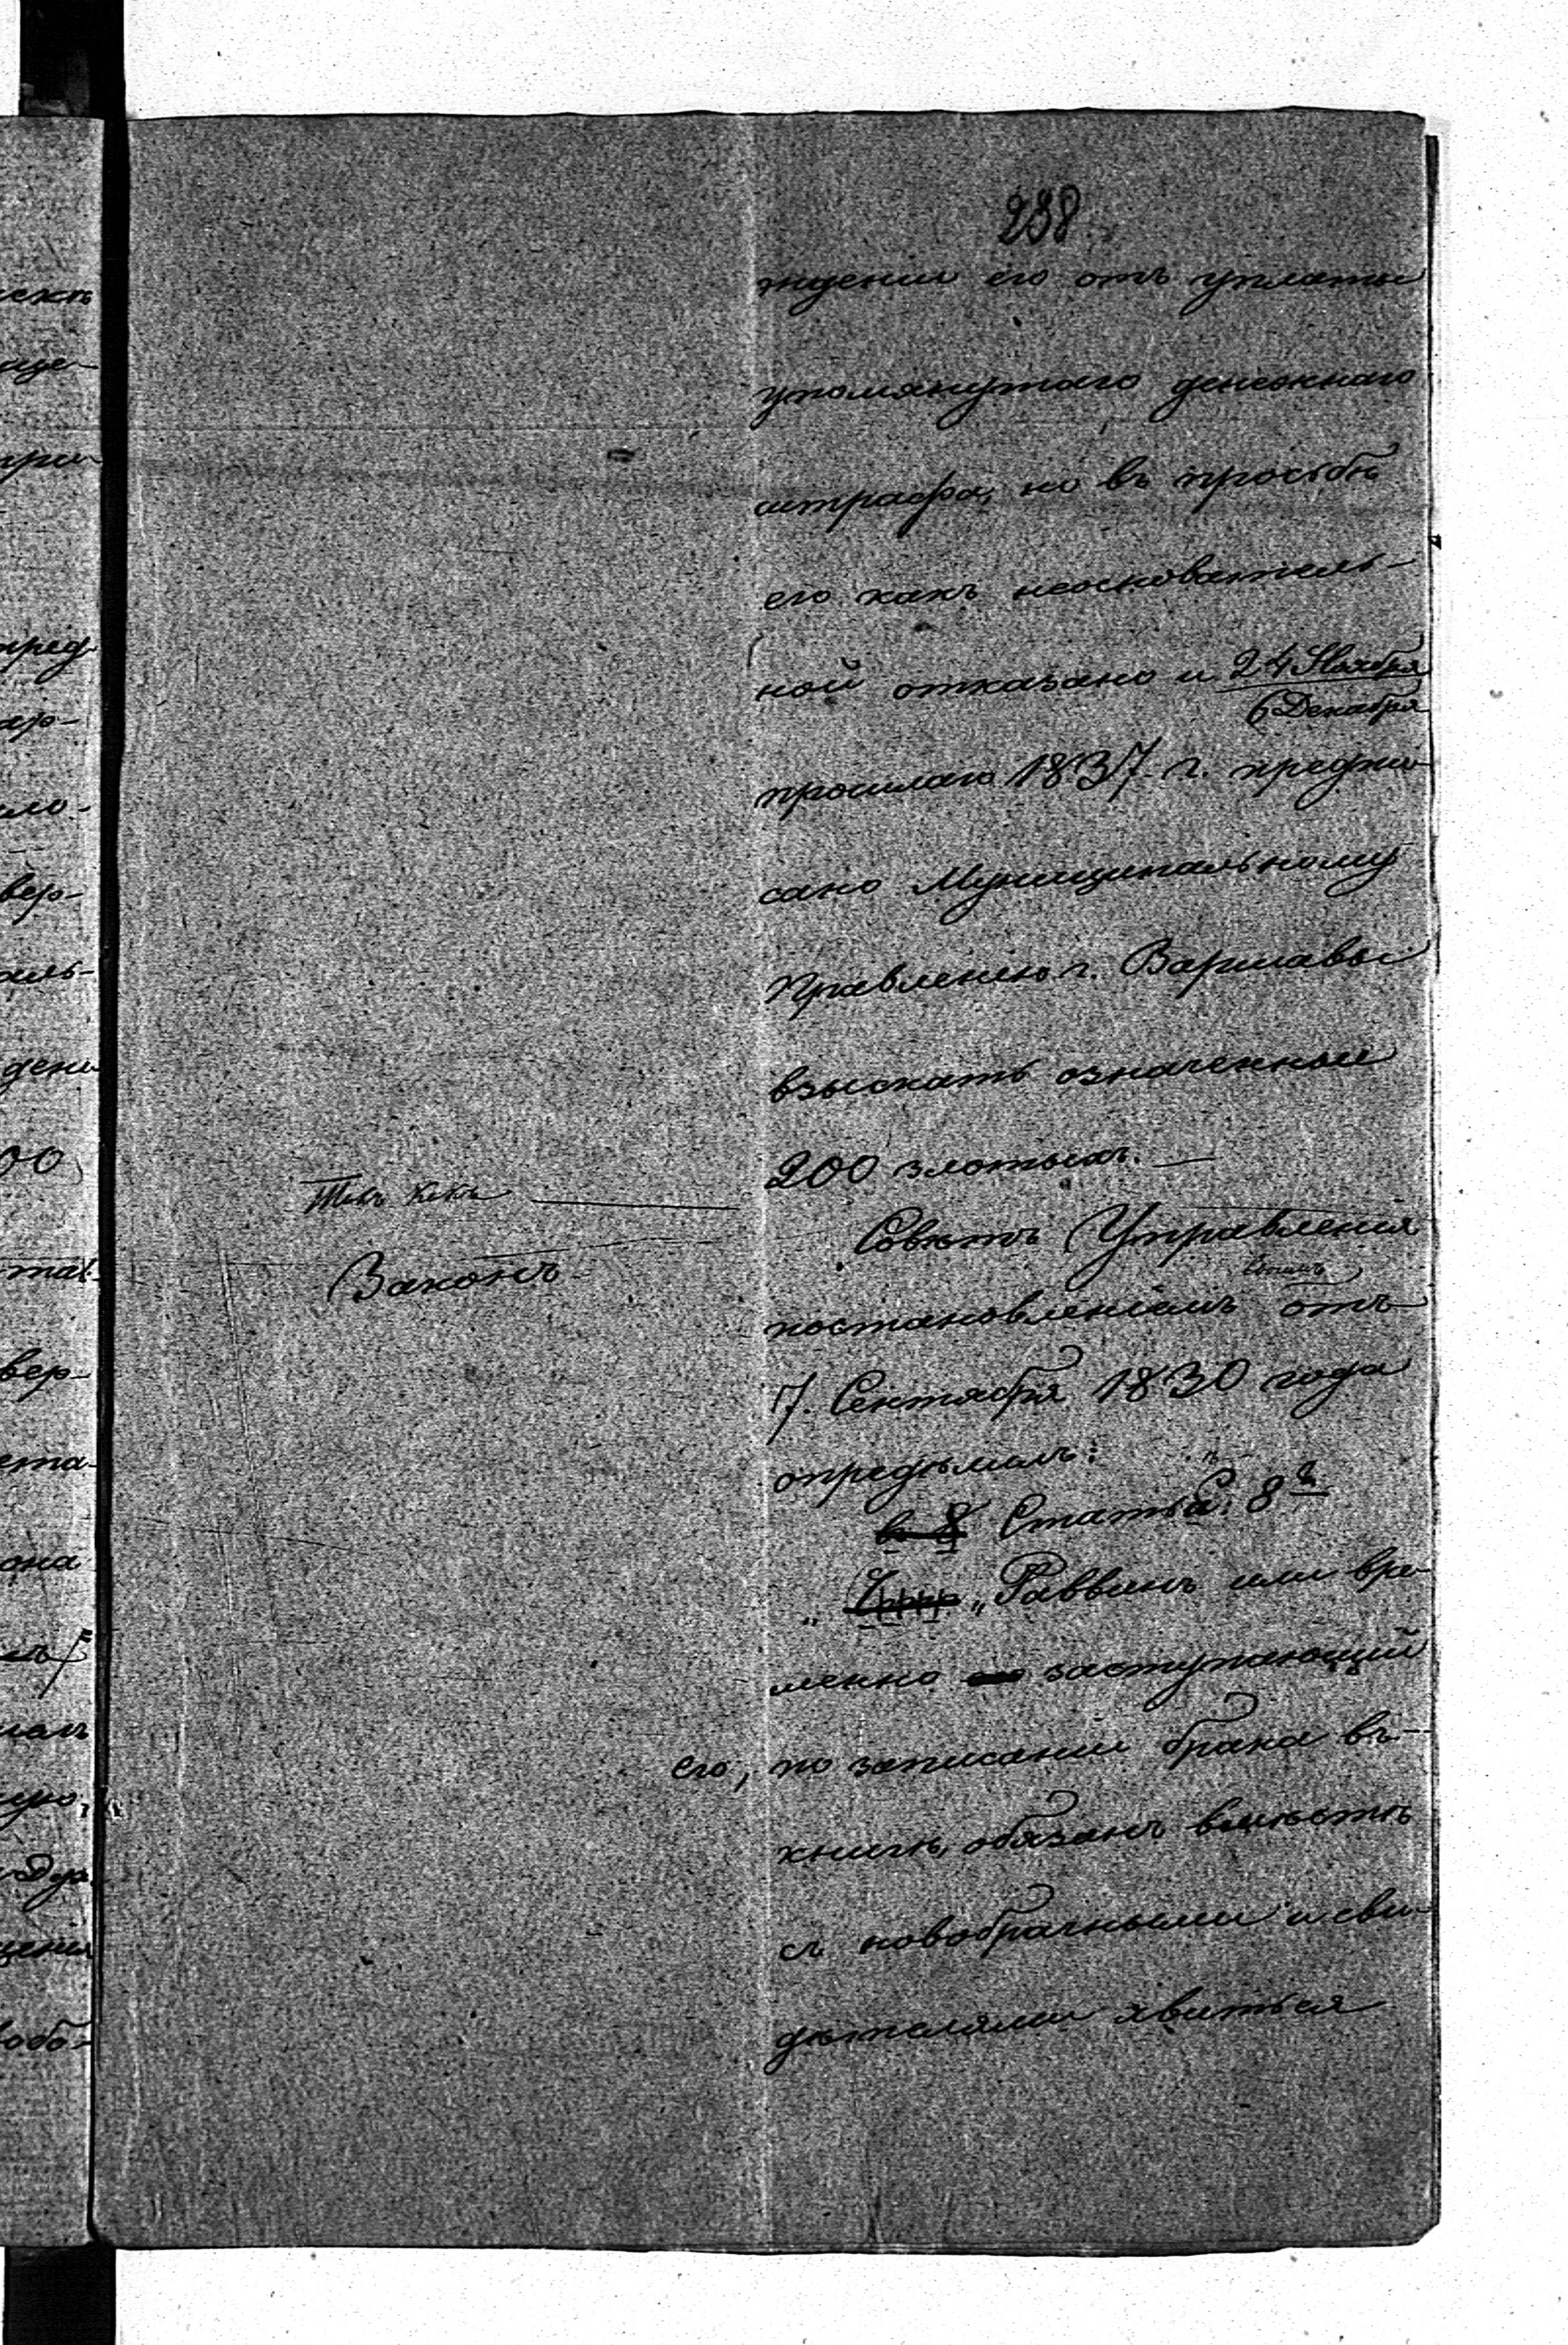 238
жденія его отъ уплаты
упомянутаго денежнаго
штрафа, но въ просьбѣ
его какъ неосновátель-
ной отказано и 24 Ноября
6 Декабря
прошлаго 1837 г. предпи-
сано Муниципальному
Правленію г. Варшавы
взыскать означенные
200 злотыхъ. —
Такъ какъ
Законъ
Совѣтъ Управленія
своимъ
постановленіемъ отъ
7. Сентября 1830 года
опредѣлилъ:
Статья: 8я
„Раввинъ или вре-
менно заступающій
его, по записаніи брака въ
книгѣ, обязанъ вмѣстѣ
съ новобрачными и сви-
дѣтелями явиться